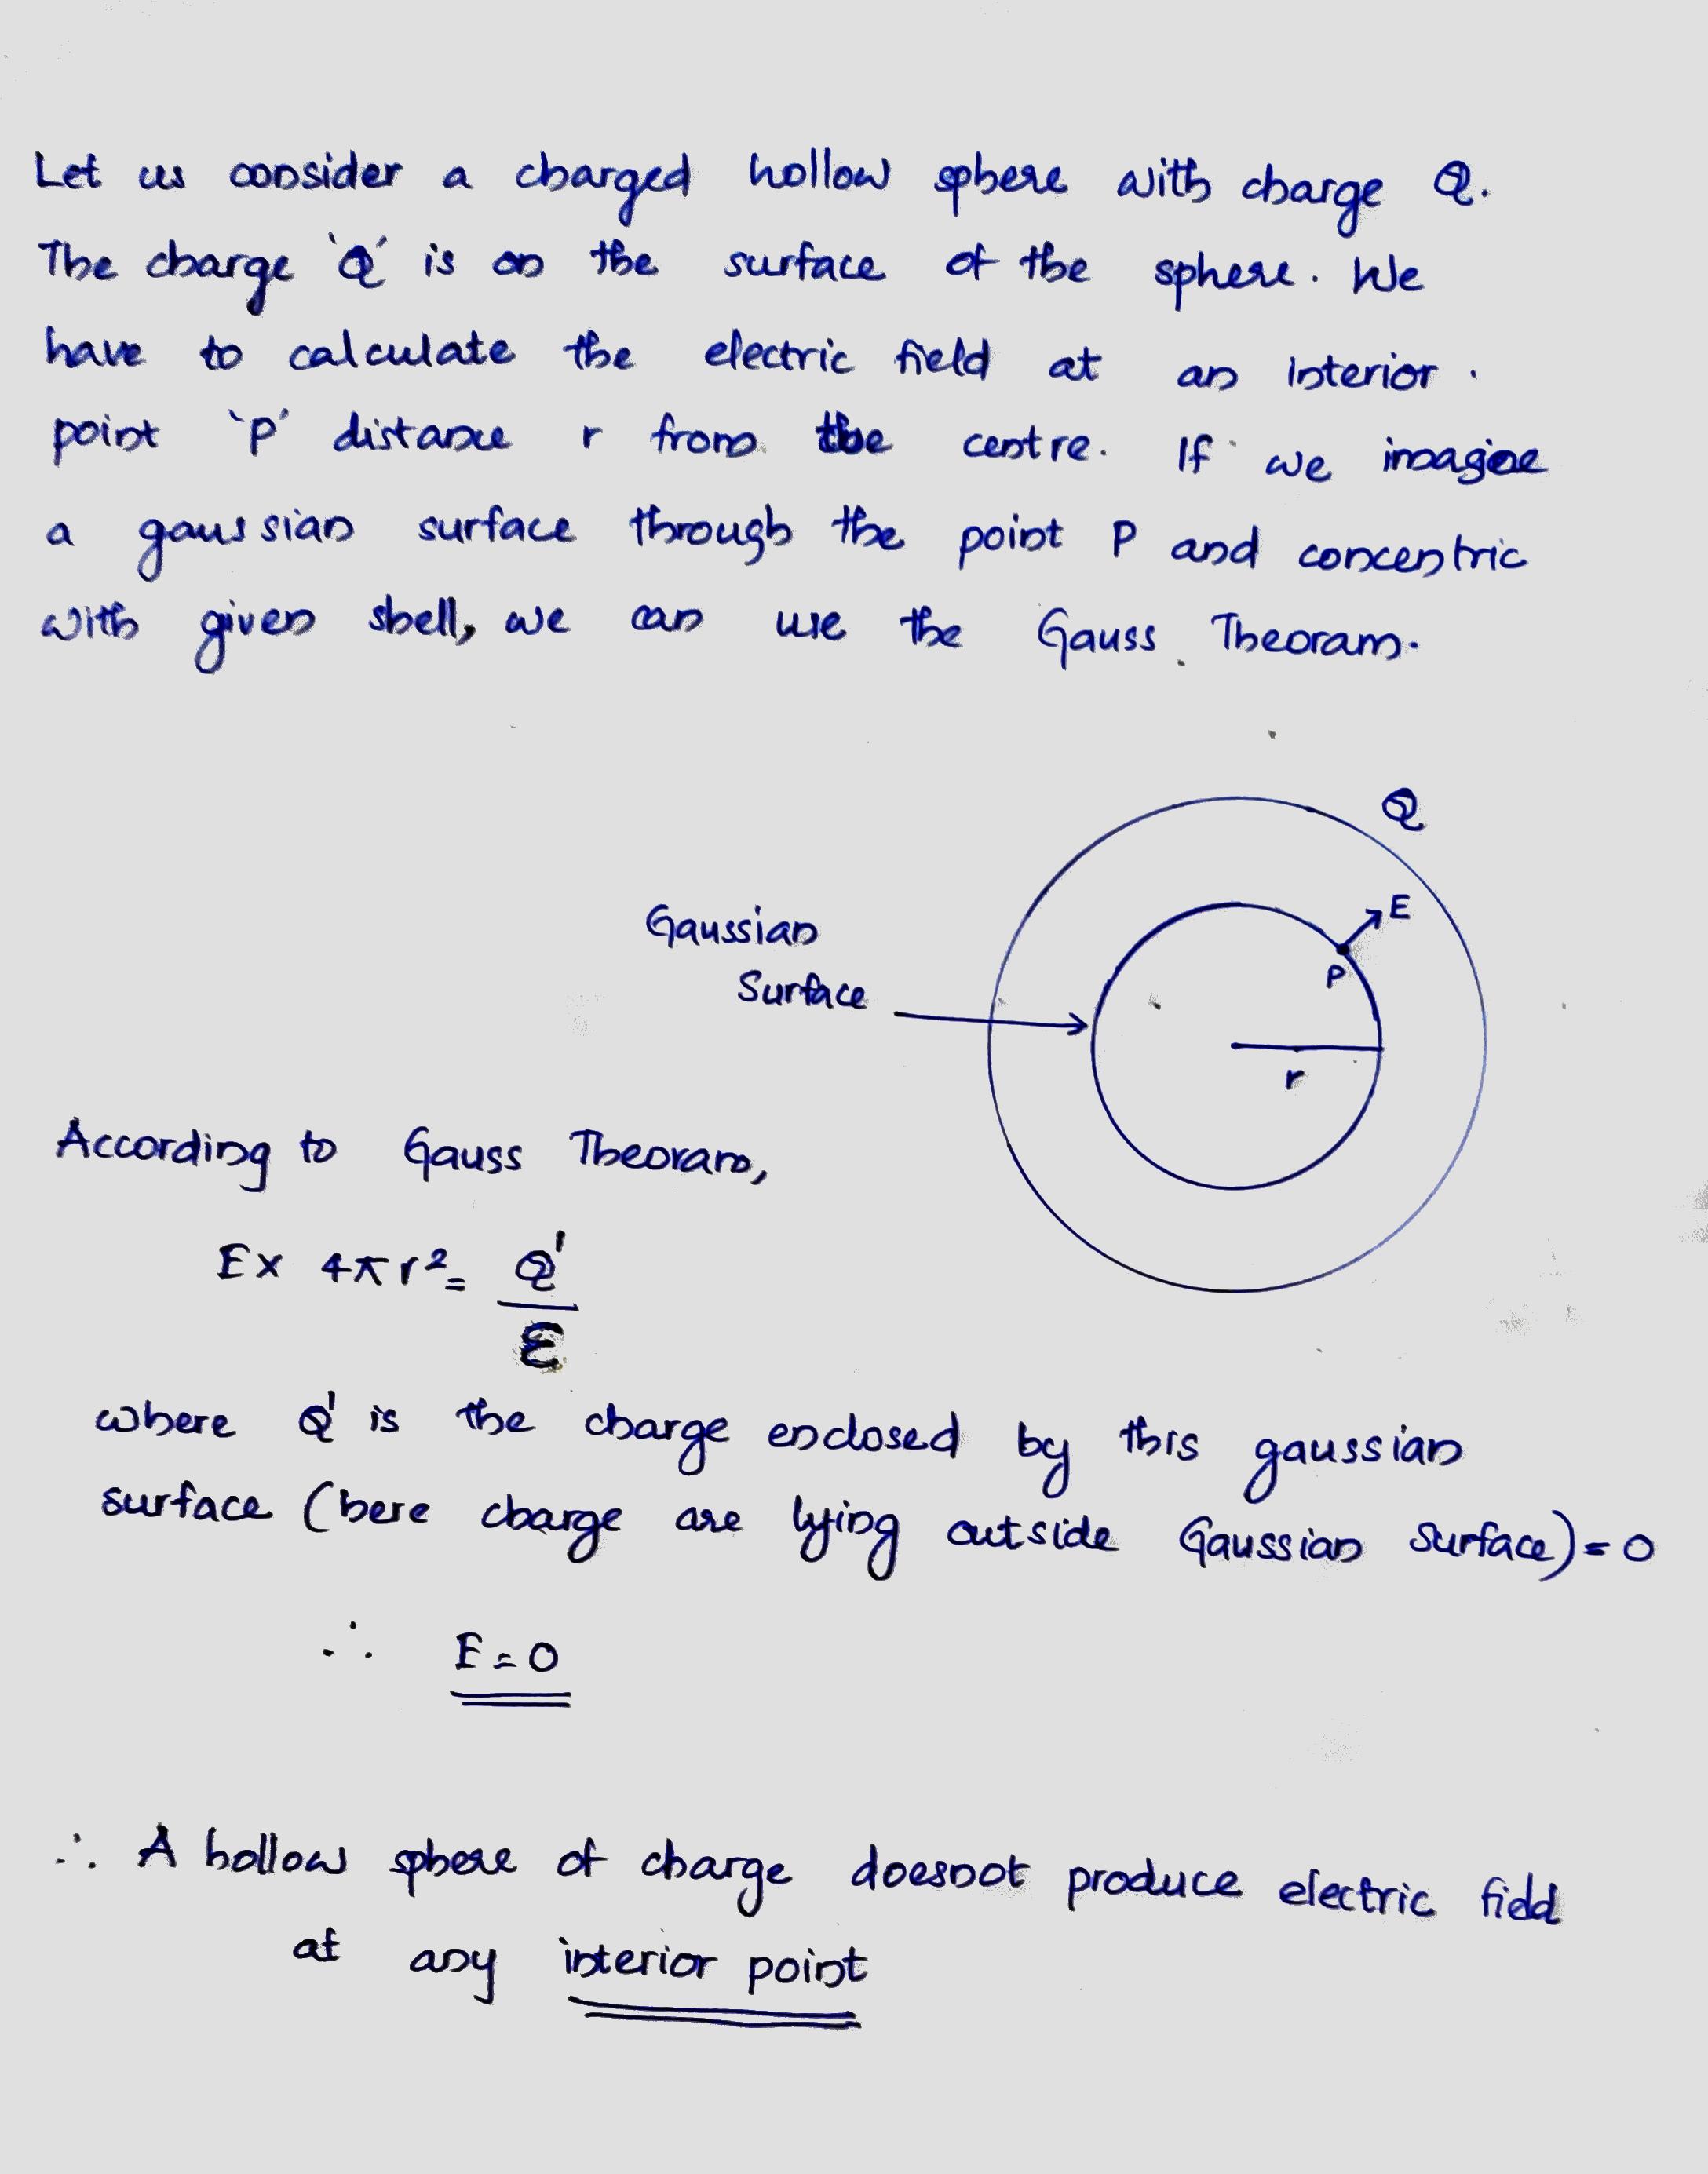 Let us consider a charged hollow sphere with charge Q.
The charge 'Q' is on the surface of the sphere. We
have to calculate the electric field at an interior.
point 'P' distance r from the centre. If we imagine
a gaussian surface through the point P and concentric
with given shell, we can use the Gauss Theoram.
Q
E
P
Gaussian
Surface
r
According to Gauss Theoram,
E× 4πr² = Q'
ε
where Q' is the charge enclosed by this gaussian
surface (here charge are lying outside Gaussian Surface) = 0
∴ E = 0
∴ A hollow sphere of charge doesnot produce electric field
at any interior point